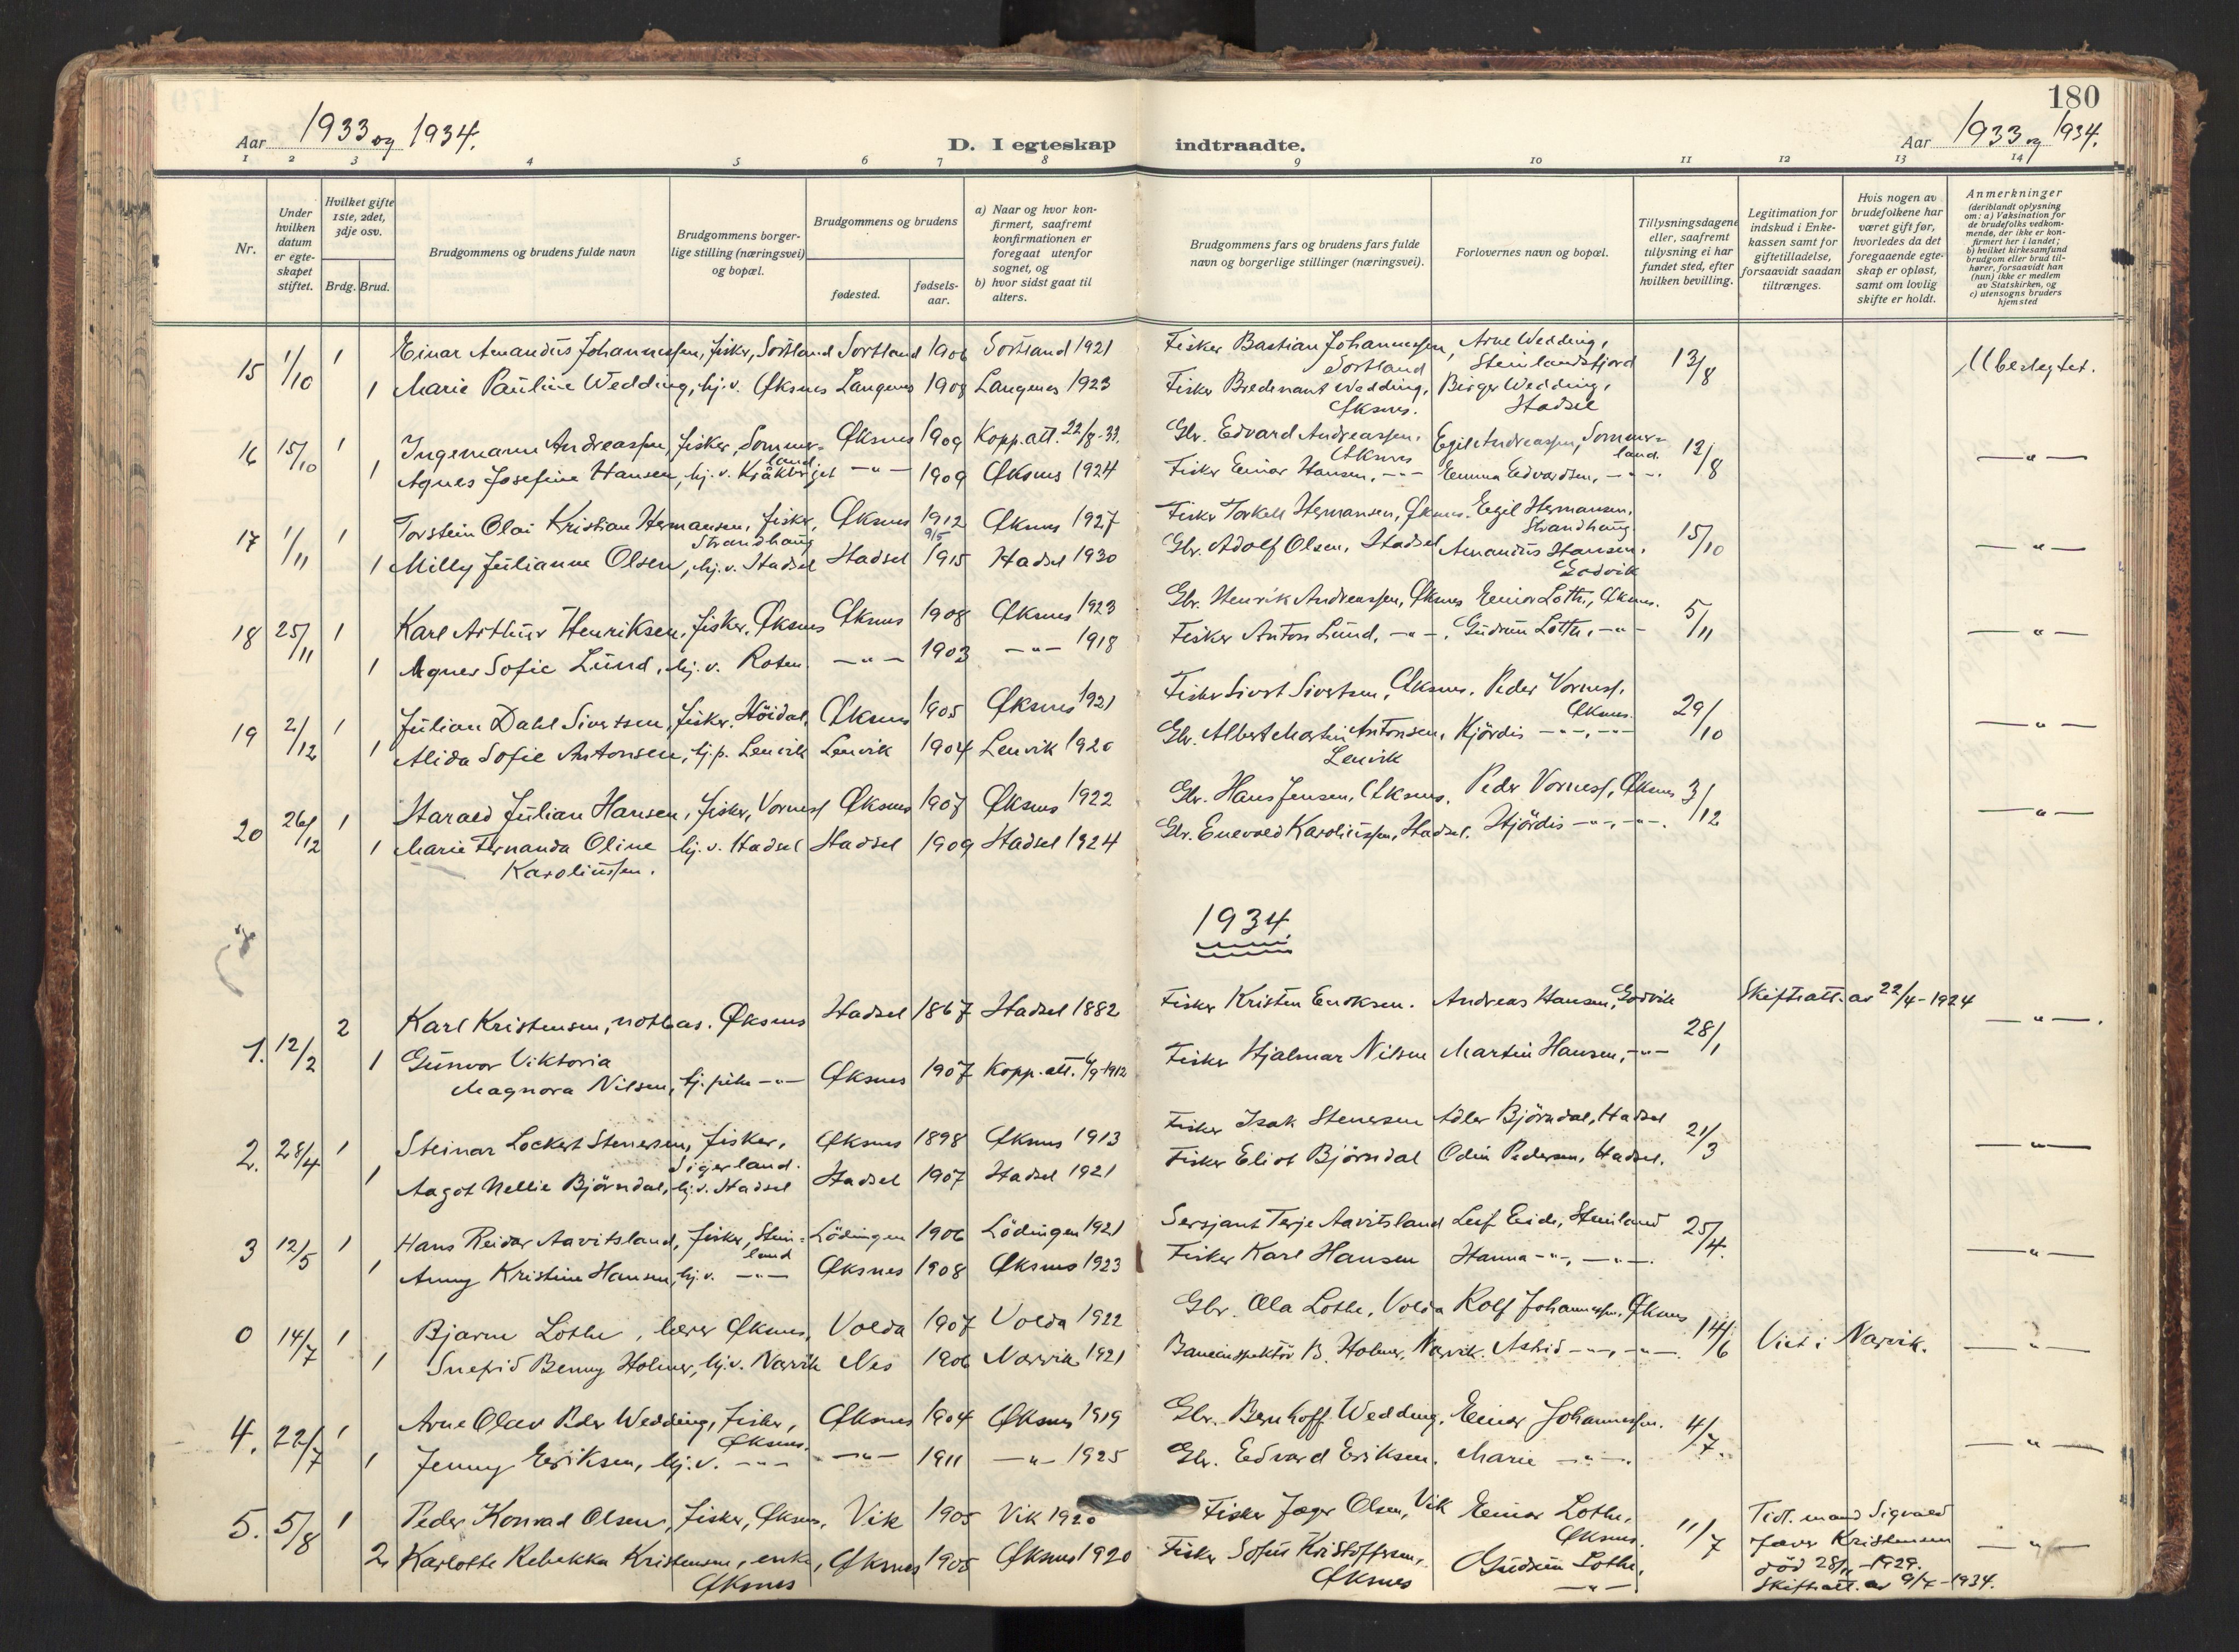 180
Aar 1933 og 1934.
D. I egteskap indtraadte.
Aar 1933 og 1934.
1 2 3 4 5 6 7 8 9 10 11 12 13 14
Nr.
Under hvilken datum er egteskapet stiftet.
Hvilket gifte 1ste, 2det, 3dje osv.
Brdg. Brud.
Brudgommens og brudens fulde navn
Brudgommens borgerlige stilling (næringsvei) og bopæl.
Brudgommens og brudens
fødested.
fødselsaar.
a) Naar og hvor konfirmert, saafremt konfirmationen er foregaat utenfor sognet, og
b) hvor sidst gaat til alters.
Brudgommens fars og brudens fars fulde navn og borgerlige stillinger (næringsvei).
Forlovernes navn og bopæl.
Tillysningsdagene eller, saafremt tillysning ei har fundet sted, efter hvilken bevilling.
Legitimation for indskud i Enkekassen samt for giftetilladelse, forsaavidt saadan tiltrænges.
Hvis nogen av brudefolkene har været gift før, hvorledes da det foregaaende egteskap er opløst, samt om lovlig skifte er holdt.
Anmerkninger (deriblandt oplysning om: a) Vaksination for de brudefolks vedkommende, der ikke er konfirmert her i landet; b) hvilket kirkesamfund brudgom eller brud tilhører, forsaavidt han (hun) ikke er medlem av Statskirken, og c) utensogns bruders hjemsted
15 1/10 1 Einar Amandus Johannessen, fisker, Sortland Sortland 1906 Sortland 1921 Fisker Bastian Johannessen, Sortland Arne Wedding, Steinlandsfjord 13/8 Ubeslegtet.
1 Marie Pauline Wedding, hj.v. Øksnes Langenes 1908 Langenes 1923 Fisker Bredenant Wedding, Øksnes. Birger Wedding, Hadsel
16 15/10 1 Ingemann Andreassen, fisker, Sommerland Øksnes 1909 Kopp.att. 22/8-33. Gbr. Edvard Andreassen, Øksnes Egil Andreassen, Sommerland. 12/8 —"—
1 Agnes Josefine Hansen, hj.v. Kråkberget —"— 1909 Øksnes 1924 Fisker Einar Hansen, —"— Emma Edvardsen, —"—.
17 1/11 1 Torstein Olai Kristian Hermansen, fisker, Strandhaug Øksnes 1912 Øksnes 1927 Fisker Torkell Hermansen, Øksnes. Egil Hermansen, Strandhaug 15/10 —"—
1 Milly Julianne Olsen, hj.v. Hadsel Hadsel 9/5 1915 Hadsel 1930 Gbr. Adolf Olsen, Hadsel Amandus Hansen, Godvik
18 25/11 1 Karl Arthur Henriksen, fisker, Øksnes Øksnes 1908 Øksnes 1923 Gbr. Henrik Andreassen, Øksnes Einar Lothe, Øksnes. 5/11 —"—
1 Agnes Sofie Lund, hj.v. Roten. —"— 1903 —"— 1918 Fisker Anton Lund, —"—. Gudrun Lothe, —"—
19 2/12 1 Julian Dahl Sivertsen, fisker, Höidal, Øksnes 1905 Øksnes 1921 Fisker Sivert Sivertsen, Øksnes. Peder Vorness, Øksnes. 29/10 —"—
1 Alida Sofie Antonsen, hj.p. Lenvik Lenvik 1904 Lenvik 1920 Gbr. Albert Martin Antonsen, Lenvik Hjördis —"—, —"—
20 26/12 1 Harald Julian Hansen, fisker, Vorness Øksnes 1907 Øksnes 1922 Gbr. Hans Jensen, Øksnes. Peder Vorness, Øksnes 3/12 —"—
1 Marie Fernanda Oline Karoliussen. hj.v. Hadsel Hadsel 1909 Hadsel 1924 Gbr. Enevold Karoliussen, Hadsel. Hjördis —"—, —"—.
1934
1. 12/2 2 Karl Kristensen, notbas. Øksnes Hadsel 1867 Hadsel 1882 Fisker Kristen Enoksen. Andreas Hansen, Godvik 28/1 Skifteatt. av 22/4-1924 —"—.
1 Gunvor Viktoria Magnora Nilsen, hj.pike —"— Øksnes 1907 Kopp.att. 6/9-1912 Fisker Hjalmar Nilsen Martin Hansen, —"—
2. 28/4 1 Steinar Lockert Stenersen, fisker, Sigerland. Øksnes 1898 Øksnes 1913 Fisker Isak Stenersen Adler Björndal, Hadsel 21/3 —"—
1 Aagot Nellie Björndal, hj.v. Hadsel Hadsel 1907 Hadsel 1921 Fisker Eliot Björndal Odin Pedersen, Hadsel.
3 12/5 1 Hans Reidar Aavitsland, fisker, Steinland Lödingen 1906 Lödingen 1921 Sersjant Terje Aavitsland Leif Eide, Steinland 25/4. —"—
1 Anny Kristine Hansen, hj.v. —"— Øksnes 1908 Øksnes 1923 Fisker Karl Hansen Hanna —"—, —"—.
0 14/7 1 Bjarne Lothe, lærer Øksnes, Volda 1907 Volda 1922 Gbr. Ola Lothe, Volda Rolf Johannessen, Øksnes 14/6 Viet i Narvik. —"—
1 Snefrid Benny Holmer, hj.v. Narvik Nes 1906 Narvik 1921 Baneinspektör B. Holmer, Narvik. Astrid —"—, —"—.
4. 22/7 1 Arne Olav Peder Wedding, fisker, Øksnes. Øksnes 1904 Øksnes 1919 Gbr. Bernhoff Wedding, Einar Johannessen. 4/7. —"—
1 Jenny Eriksen, hj.v. —"— —"— 1911 —"— 1925 Gbr. Edvard Eriksen. Marie —"—.
5. 5/8 1 Peder Konrad Olsen, fisker, Øksnes, Vik 1905 Vik 1920 Fisker Jæger Olsen, Vik Einar Lothe, Øksnes. 11/7 Tidl. mand Sigvald Kristensen død 28/11-1929. Skifteatt. av 9/7-1934. —"—
2 Karlotte Rebekka Kristensen, enke, Øksnes Øksnes 1905 Øksnes 1920 Fisker Sofus Kristoffersen, Øksnes Gudrun Lothe, —"—